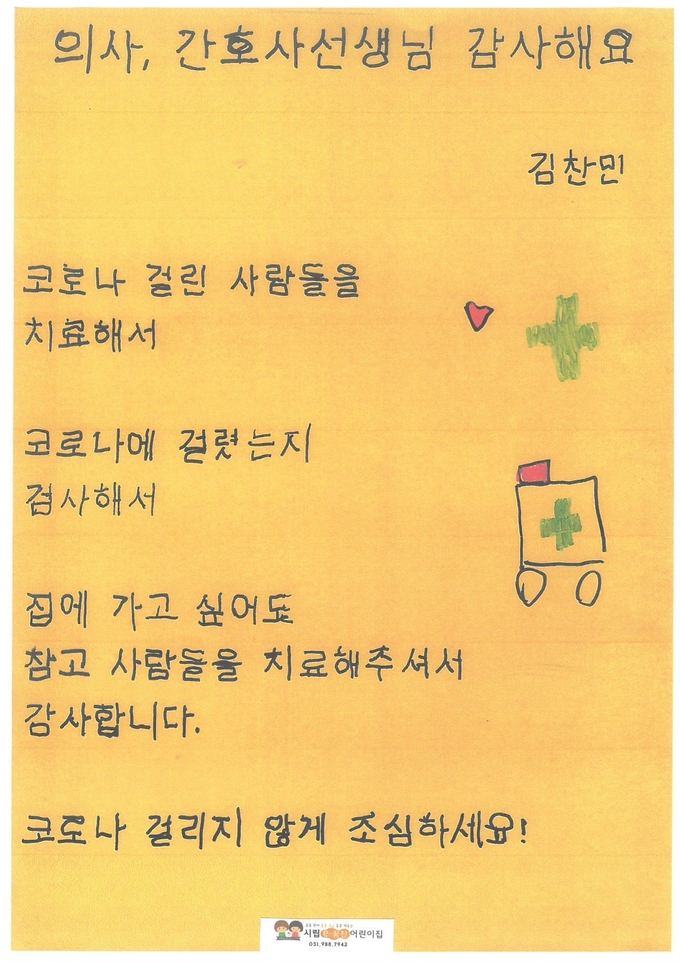 의사, 간호사선생님 감사해요
김찬민
코로나 걸린 사람들을
치료해서
코로나에 걸렸는지
검사해서
집에 가고 싶어도
참고 사람들을 치료해주셔서
감사합니다.
코로나 걸리지 않게 조심하세요!
시립 어린이집
031.988.7942